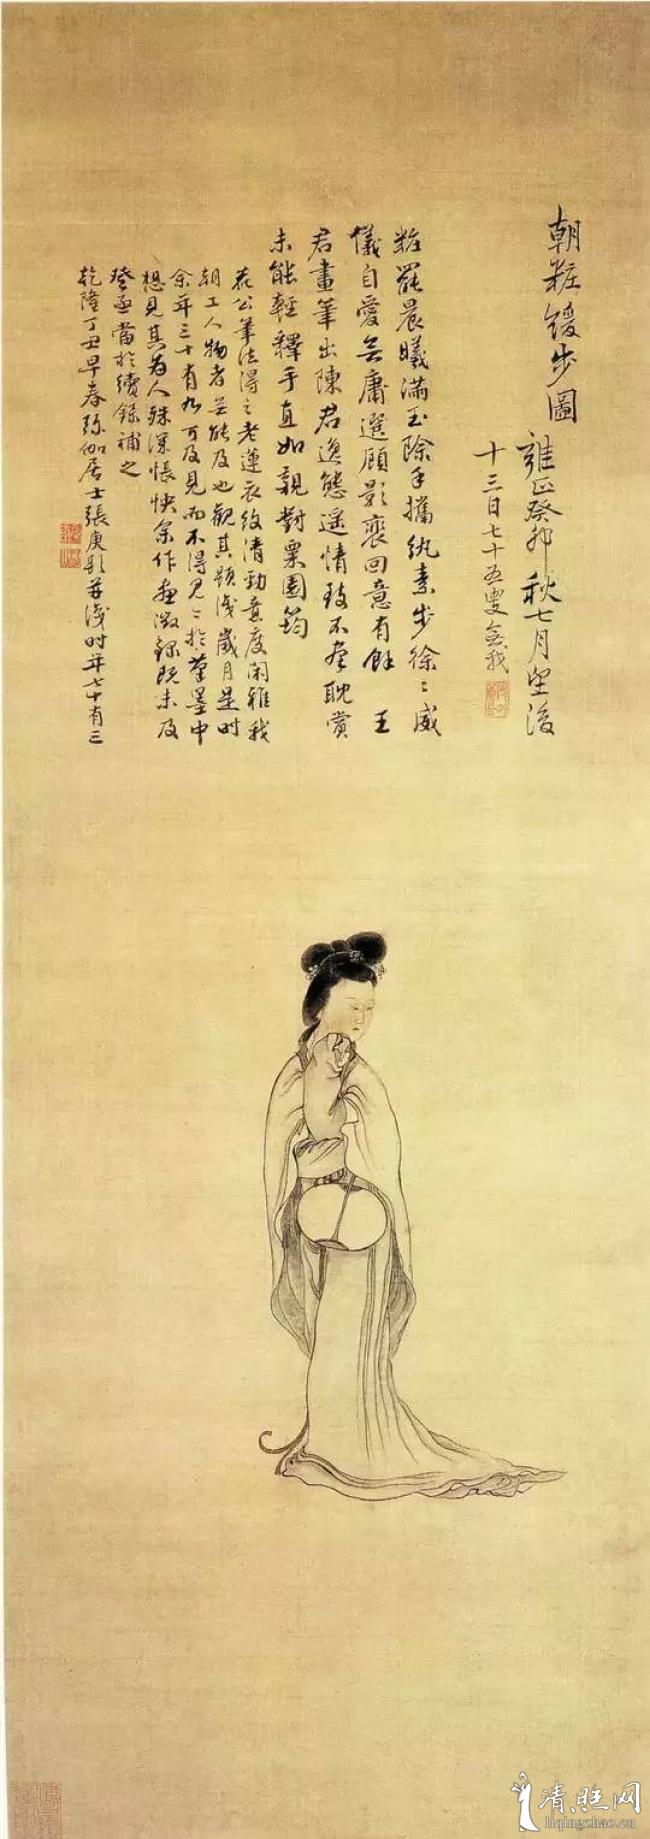 朝粧緩步圖
雍正癸卯秋七月望後
十三日七十五叟無我
粧罷晨曦滿玉除手攜紈素步徐〻威
儀自愛無庸選顧影裵回意有餘 王
君畫筆出陳君逸態遥情致不羣耽賞
未能輕釋手直如親對粟園筠
公筆法得之老蓮衣紋清勁意度閑雅我
朝工人物者無能及也觀其題淺歲月是時
余年三十有九可及見而不得見〻於筆墨中
想見其為人殊深悵怏余作畫徵錄既未及
登亟當於續錄補之
乾隆丁丑早春弥伽居士張庚題并淺時年七十有三
清照网
liqingzhao.cn